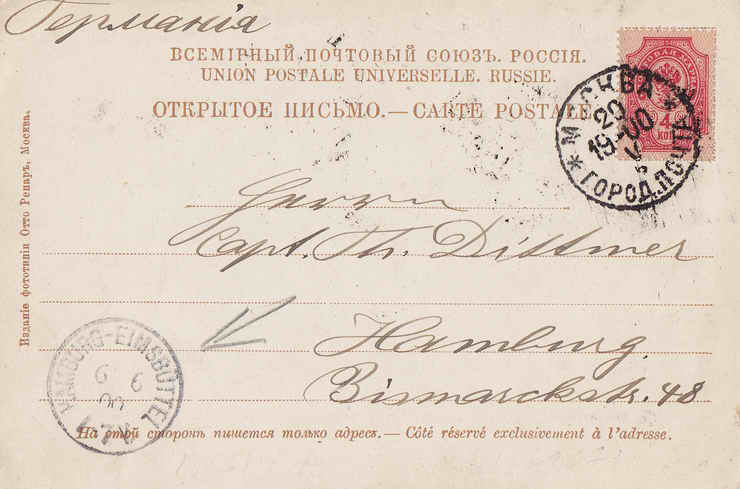 Германія
ВСЕМІРНЫЙ ПОЧТОВЫЙ СОЮЗЪ. РОССІЯ.
UNION POSTALE UNIVERSELLE. RUSSIE.
ОТКРЫТОЕ ПИСЬМО.—CARTE POSTALE
4
КОП
МОСКВА
29
19-00
V
ГОРОД. ПОЧТА
Herrn
Capt. Th. Dittmer
Hamburg
Bismarckstr. 48
HAMBURG-EIMSBÜTTEL
6 6
00
На этой сторонѣ пишется только адресъ.—Côté réservé exclusivement à l'adresse.
Изданіе фототипіи Отто Ренаръ, Москва.